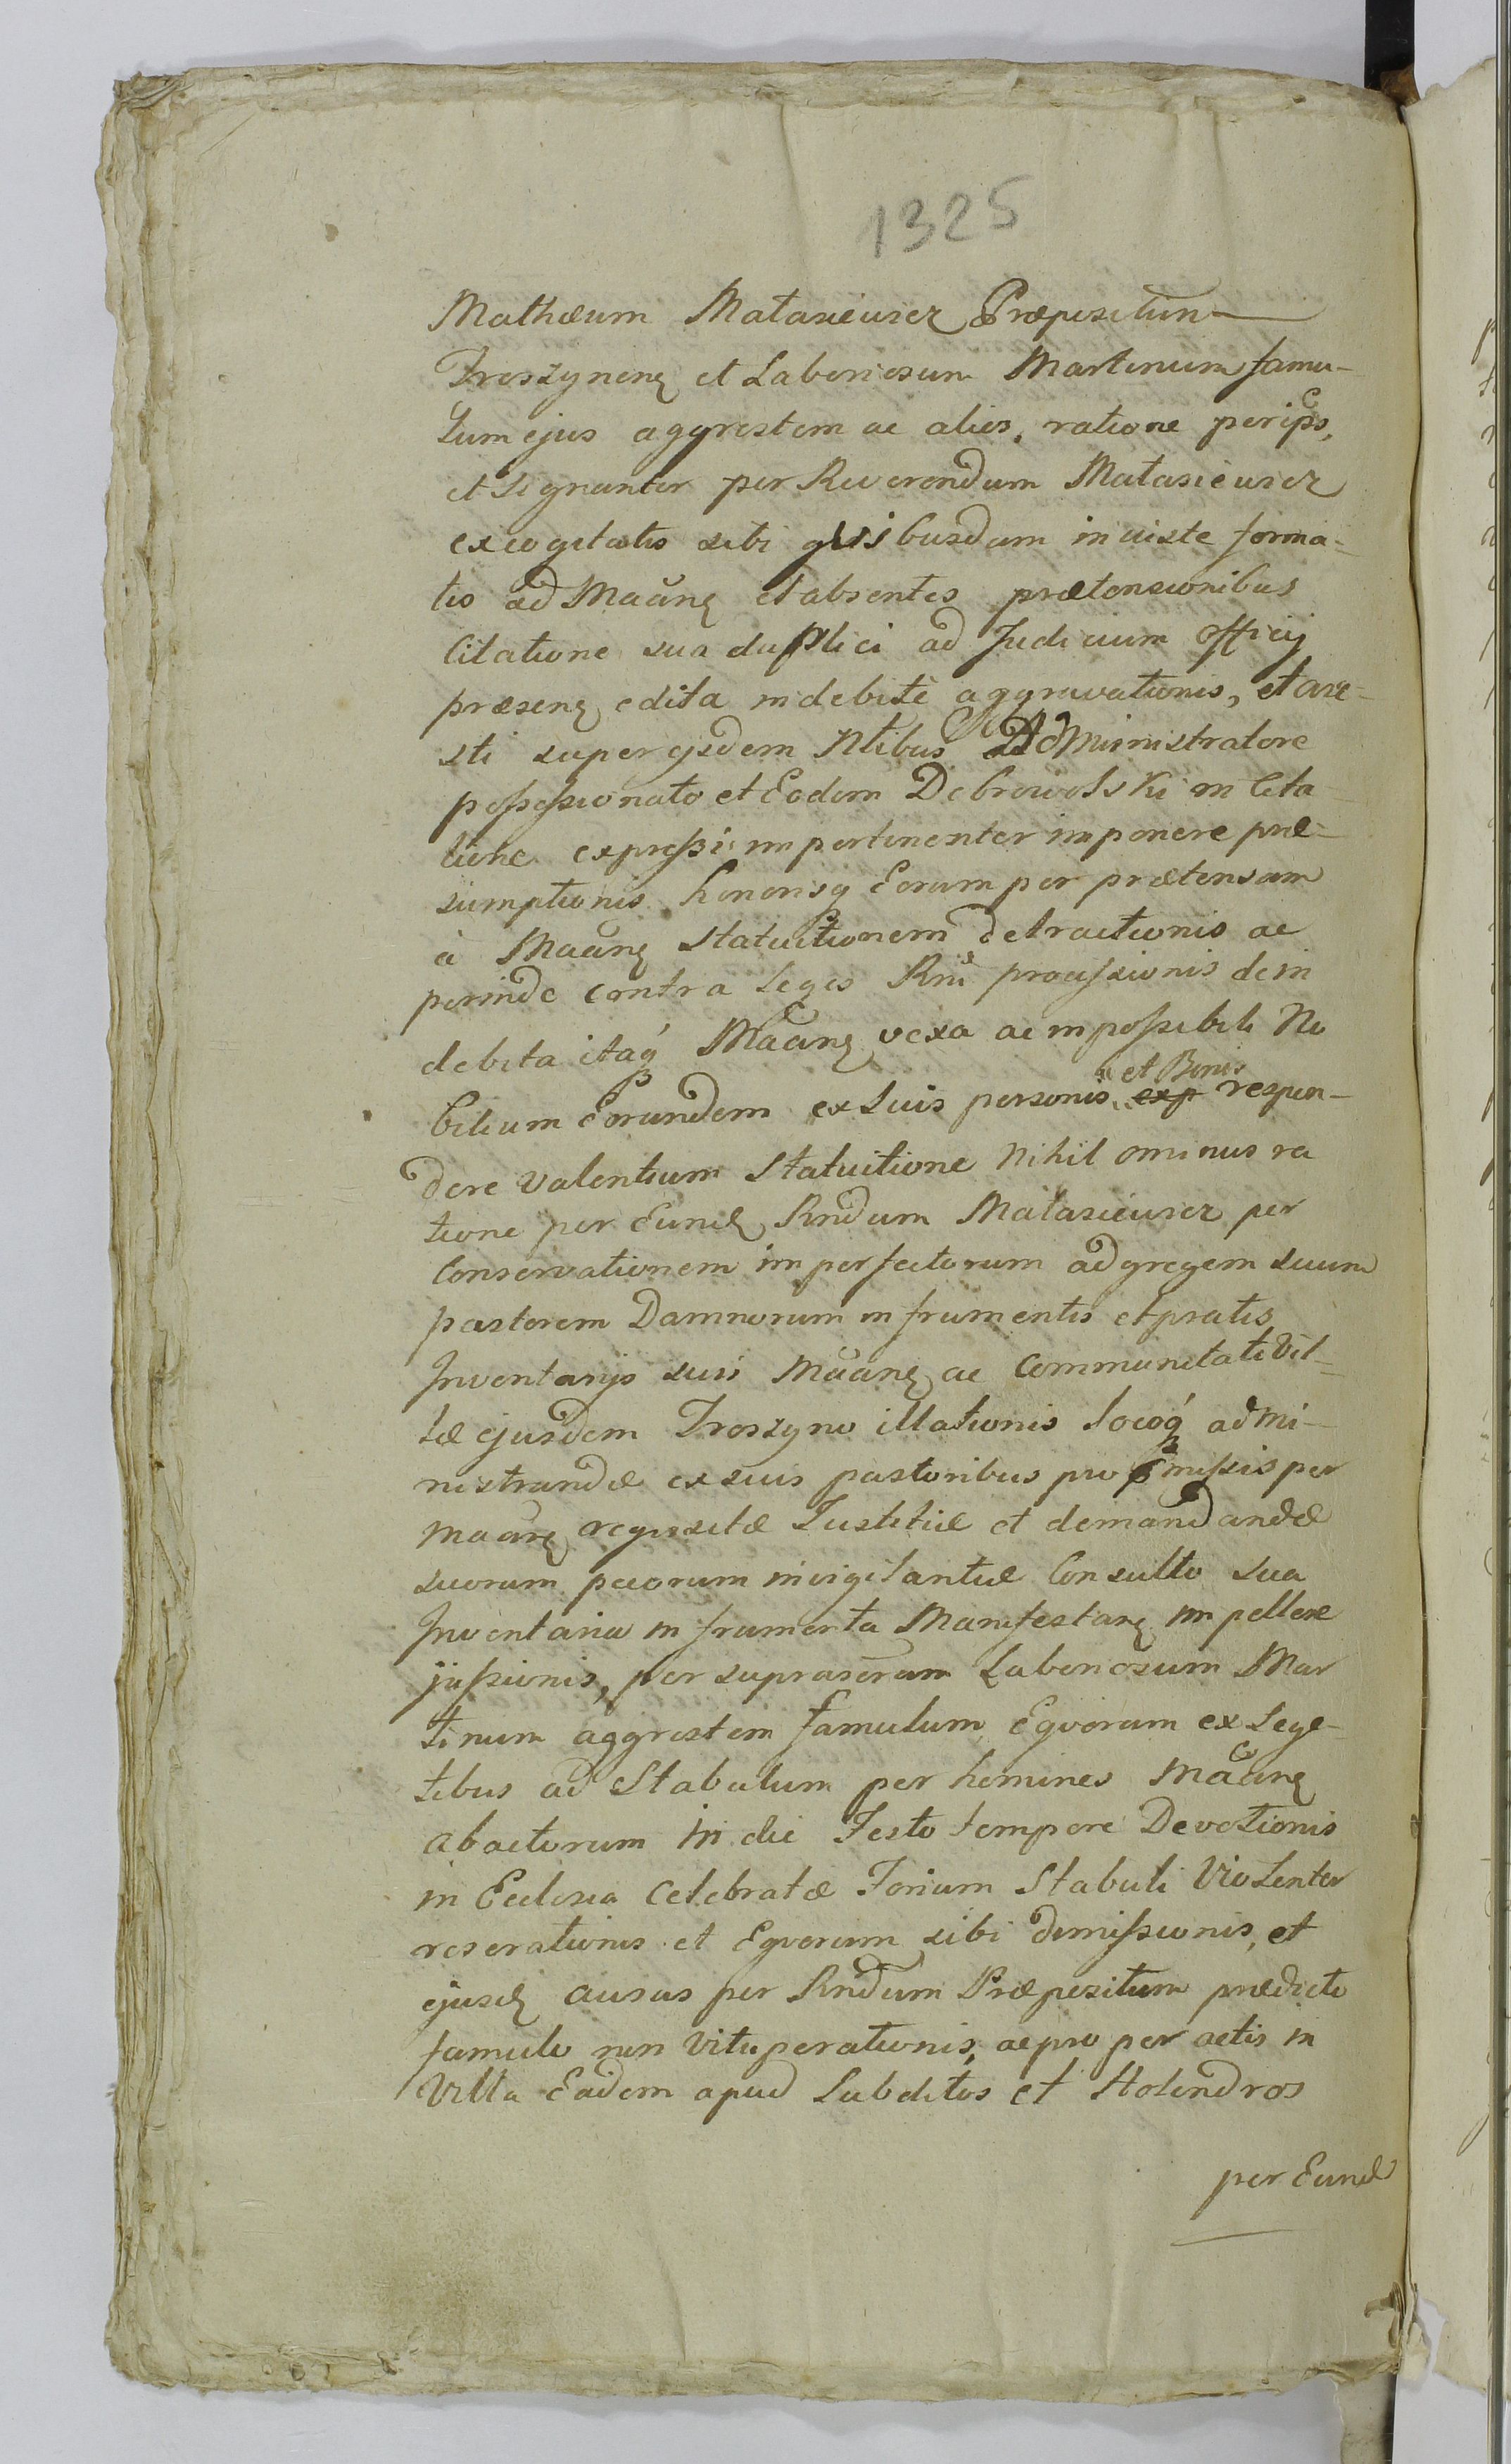 1325
Mathæum Matasiewicz Præpositum
Troszynenẽ et Laboriosum Martinum famu-
lum ejus aggrestem ac alios, ratione per ip̃s,
et signanter per Reverendum Matasiewicz
excogitatis sibi qvibusdam iniuste forma-
tis ad Maãnẽ et absentes prætensionibus
Citatione sua duplici ad Judicium Officij
præsenẽ edita indebitè aggravationis, et are-
sti super ejsdem Ntibus Administratore
possessionato et Eodem Dobrowolski in Cita
tione expressi impertinenter imponere præ-
sumptionis honorisq Eorum per prætensam
à Maãnẽ Statuitionem detractionis ac
perinde contra Leges Rni processionis de in
debita itaq Maãnẽ vexa ac impossibili No
bilium Eorundem ex suis personis et Bonis exp respon-
dere valentium Statuitione nihilominus ra
tione per Eundẽ Rndum Matasiewicz per
Conservationem imperfectorum ad gregem suum
pastorem Damnorum in frumentis et pratis
Inventarijs suis Maãnẽ ac Communitati Vil-
læ ejusdem Troszyno illationis locoq admi-
nistrandæ ex suis pastoribus pro pmissis per
maãnẽ reqvisitæ Justitiæ et demandandæ
suorum pecorum invigilantiæ Consulto sua
Inventaria in frumenta Manifestanẽ impellere
jussionis, per suprascrum Laboriosum Mar
tinum aggrestem famulum Eqvorum ex sege-
tibus ad Stabulum per homines Maãnẽ
abactorum in die Festo tempore Devotionis
in Ecclesia Celebratæ Forium Stabuli Violenter
reserationis et Eqvorum sibi dimissionis, et
ejusdẽ ausus per Rndum Præpositum prædicto
famulo non Vituperationis, ac pro per actis in
Villa Eadem apud Subditos et Holendros
per Eundẽ